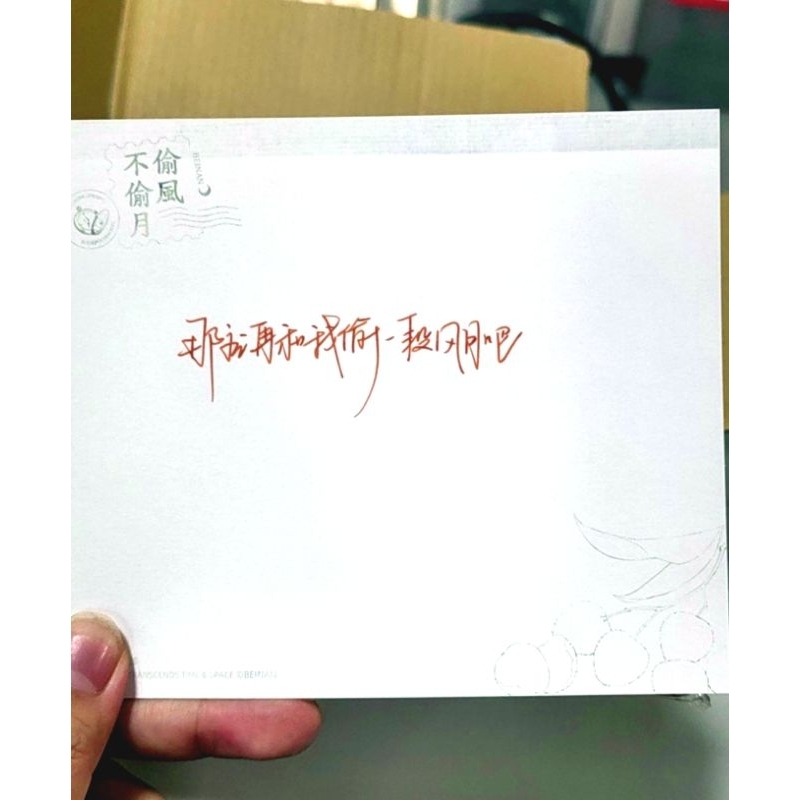 偷風
不偷月
BEINAN
那就再和我偷一段风月吧
TRANSCENDS TIME & SPACE ©BEINAN